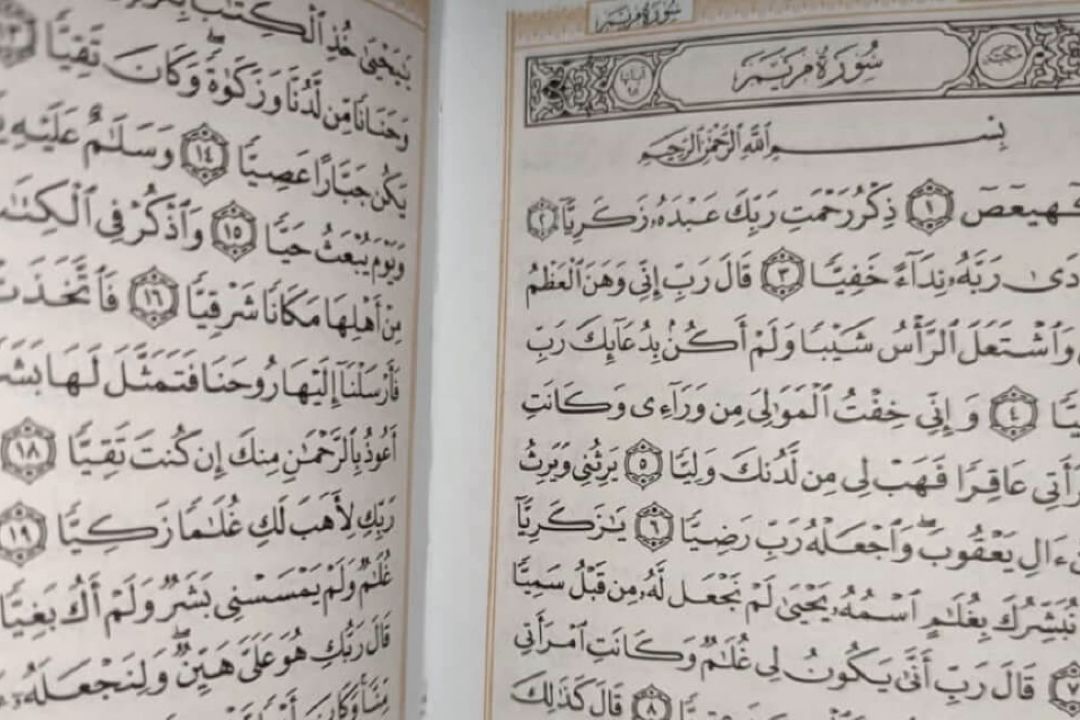 سُورَةُ مَرۡيَمَ
سُورَةُ مَرۡيَمَ
بِسۡمِ ٱللَّهِ ٱلرَّحۡمَٰنِ ٱلرَّحِيمِ
كٓهيعٓصٓ ١ ذِكۡرُ رَحۡمَتِ رَبِّكَ عَبۡدَهُۥ زَكَرِيَّآ ٢
رَبَّهُۥ نِدَآءً خَفِيّٗا ٣ قَالَ رَبِّ إِنِّي وَهَنَ ٱلۡعَظۡمُ
وَٱشۡتَعَلَ ٱلرَّأۡسُ شَيۡبٗا وَلَمۡ أَكُنۢ بِدُعَآئِكَ رَبِّ
٤ وَإِنِّي خِفۡتُ ٱلۡمَوَٰلِيَ مِن وَرَآءِي وَكَانَتِ
عَاقِرٗا فَهَبۡ لِي مِن لَّدُنكَ وَلِيّٗا ٥ يَرِثُنِي وَيَرِثُ
ءَالِ يَعۡقُوبَۖ وَٱجۡعَلۡهُ رَبِّ رَضِيّٗا ٦ يَٰزَكَرِيَّآ
نُبَشِّرُكَ بِغُلَٰمٍ ٱسۡمُهُۥ يَحۡيَىٰ لَمۡ نَجۡعَل لَّهُۥ مِن قَبۡلُ سَمِيّٗا
٧ قَالَ رَبِّ أَنَّىٰ يَكُونُ لِي غُلَٰمٞ وَكَانَتِ ٱمۡرَأَتِي
٨ قَالَ كَذَٰلِكَ
يَٰيَحۡيَىٰ خُذِ ٱلۡكِتَٰبَ
وَحَنَانٗا مِّن لَّدُنَّا وَزَكَوٰةٗۖ وَكَانَ تَقِيّٗا ١٣
يَكُن جَبَّارًا عَصِيّٗا ١٤ وَسَلَٰمٌ عَلَيۡهِ
وَيَوۡمَ يُبۡعَثُ حَيّٗا ١٥ وَٱذۡكُرۡ فِي ٱلۡكِتَٰبِ
مِنۡ أَهۡلِهَا مَكَانٗا شَرۡقِيّٗا ١٦ فَٱتَّخَذَتۡ
فَأَرۡسَلۡنَآ إِلَيۡهَا رُوحَنَا فَتَمَثَّلَ لَهَا
أَعُوذُ بِٱلرَّحۡمَٰنِ مِنكَ إِن كُنتَ تَقِيّٗا ١٨
رَبِّكِ لِأَهَبَ لَكِ غُلَٰمٗا زَكِيّٗا ١٩
غُلَٰمٞ وَلَمۡ يَمۡسَسۡنِي بَشَرٞ وَلَمۡ أَكُ بَغِيّٗا
قَالَ رَبُّكِ هُوَ عَلَيَّ هَيِّنٞۖ وَلِنَجۡعَلَهُۥٓ